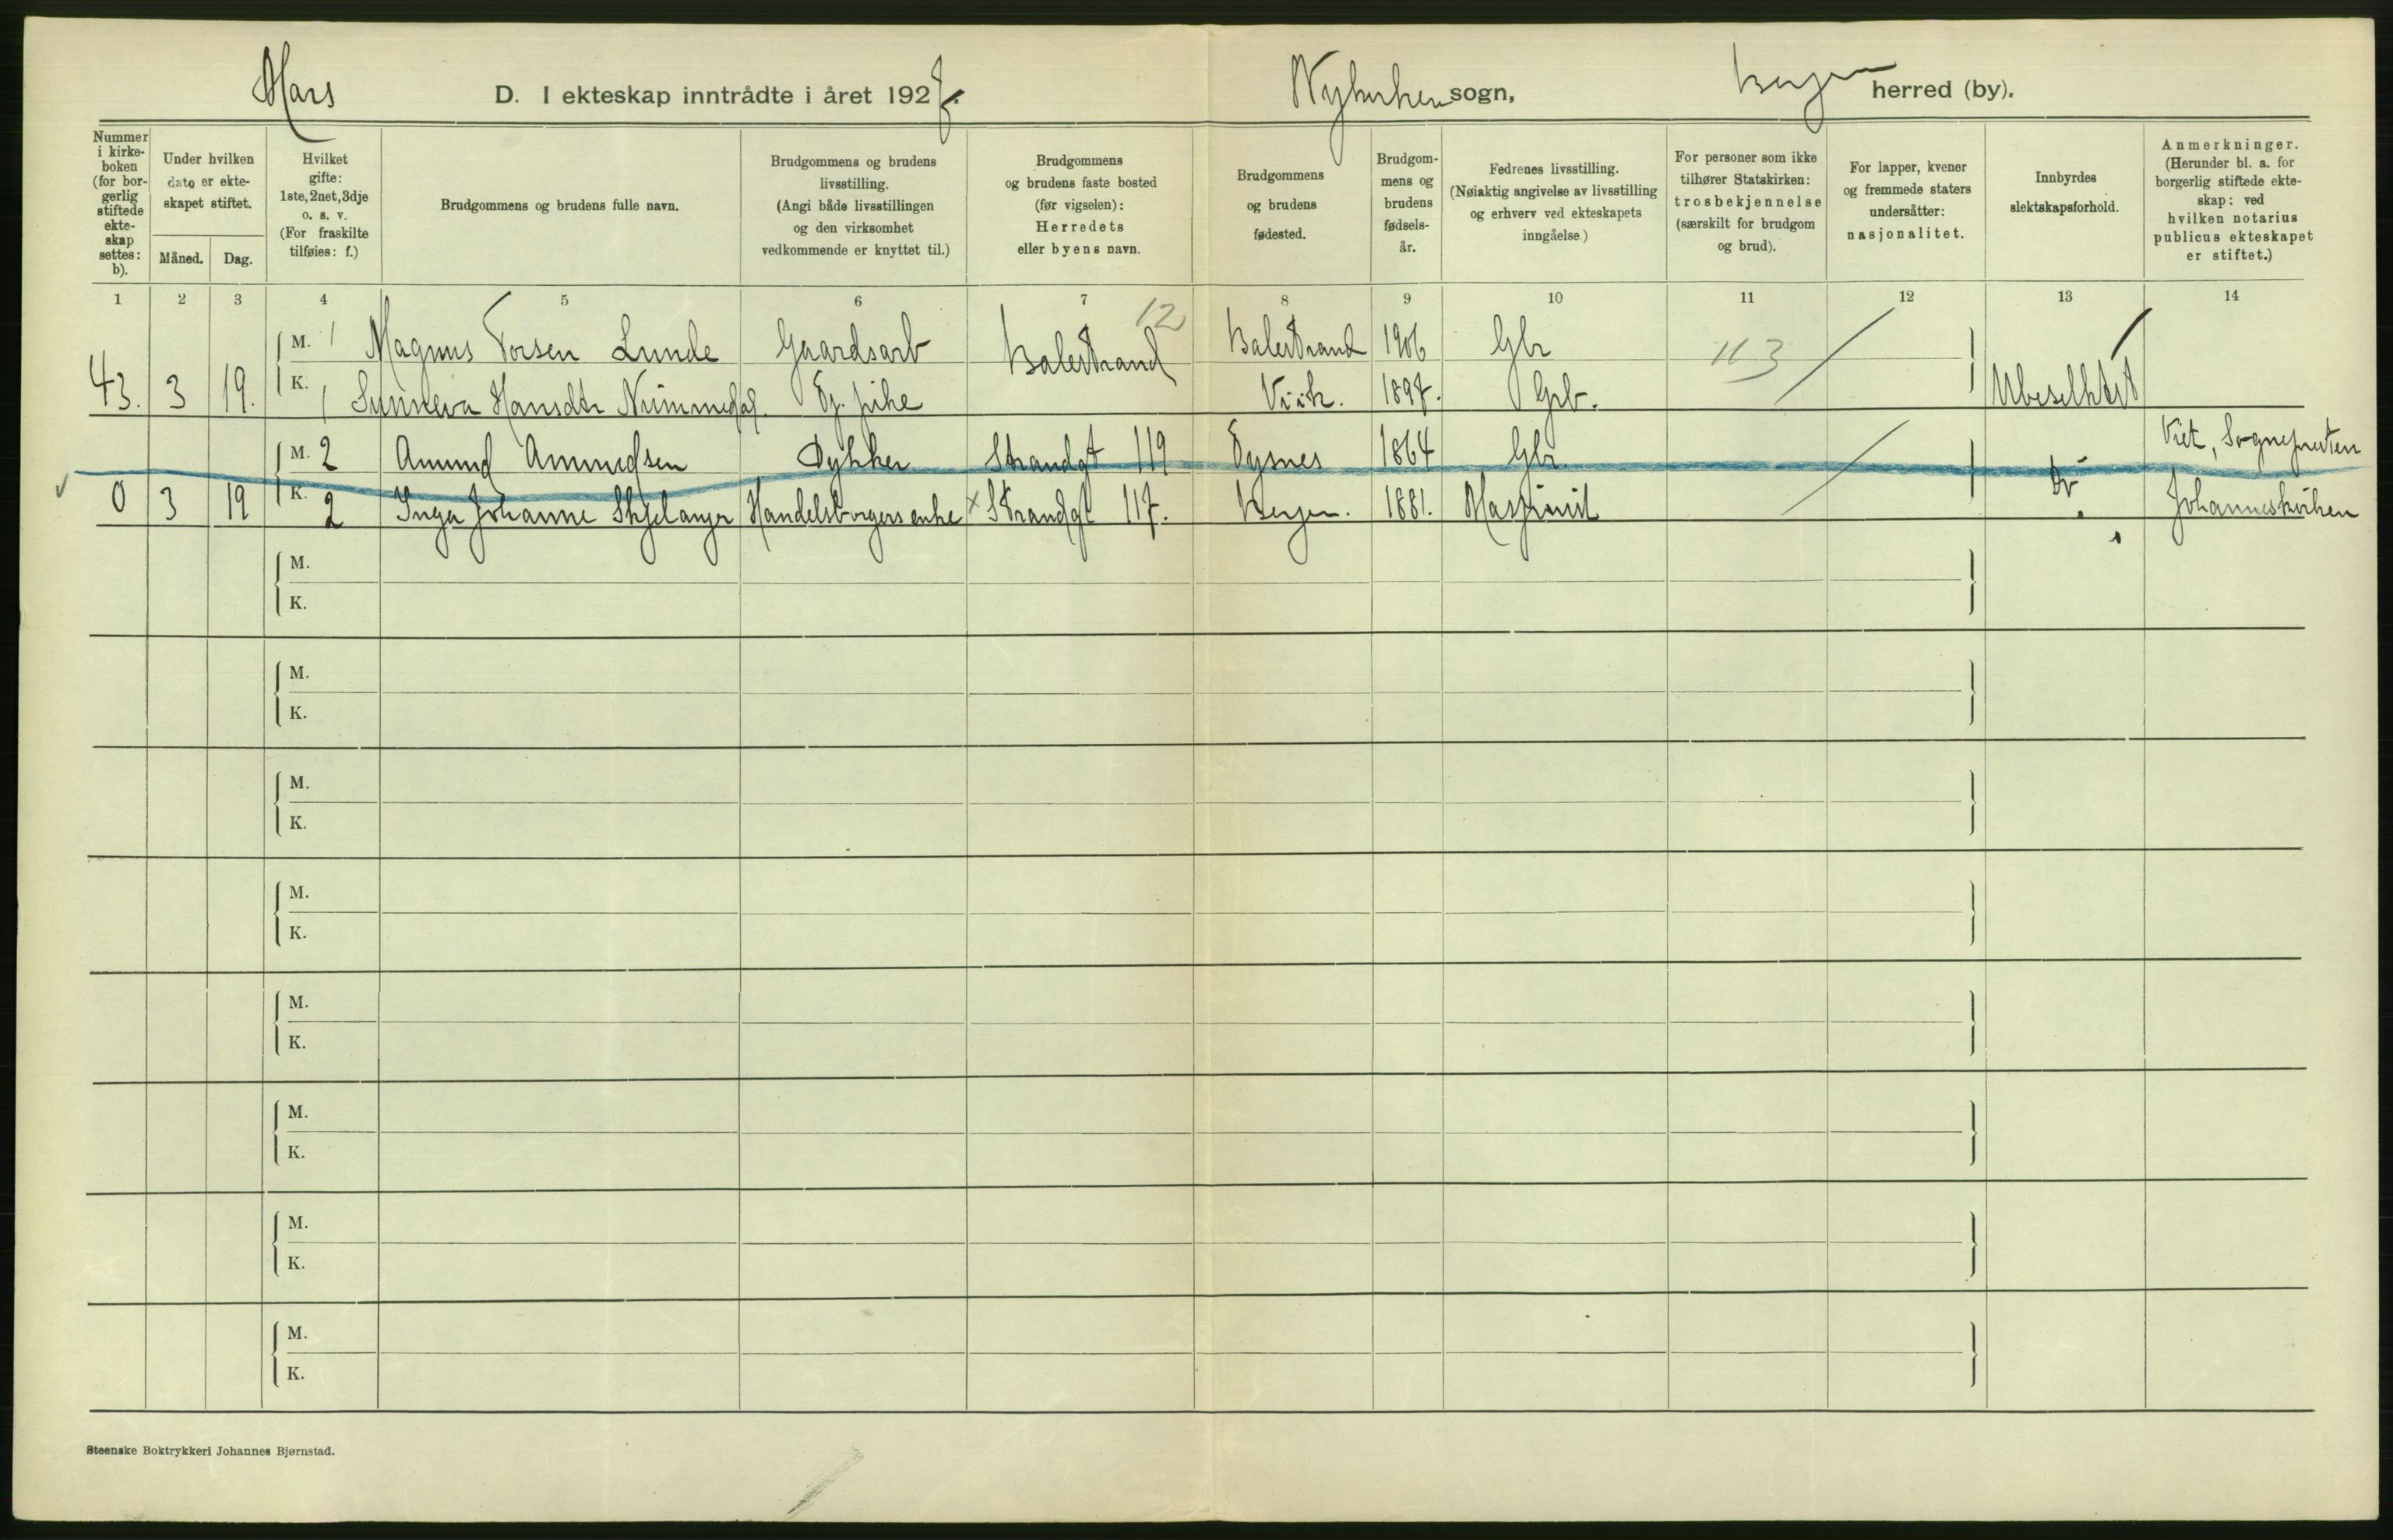 Mars D. I ekteskap inntrådte i året 1927. Nykirken sogn, Bergen herred (by).
Nummer i kirkeboken (for borgerlig stiftede ekteskap settes: b).
Under hvilken dato er ekteskapet stiftet.
Måned. Dag.
Hvilket gifte: 1ste, 2net, 3dje o. s. v. (For fraskilte tilføies: f.)
Brudgommens og brudens fulle navn.
Brudgommens og brudens livsstilling. (Angi både livsstillingen og den virksomhet vedkommende er knyttet til.)
Brudgommens og brudens faste bosted (før vigselen): Herredets eller byens navn.
Brudgommens og brudens fødested.
Brudgommens og brudens fødselsår.
Fedrenes livsstilling. (Nøiaktig angivelse av livsstilling og erhverv ved ekteskapets inngåelse.)
For personer som ikke tilhører Statskirken: trosbekjennelse (særskilt for brudgom og brud).
For lapper, kvener og fremmede staters undersåtter: nasjonalitet.
Innbyrdes slektskapsforhold.
Anmerkninger. (Herunder bl. a. for borgerlig stiftede ekteskap: ved hvilken notarius publicus ekteskapet er stiftet.)
1 2 3 4 5 6 7 8 9 10 11 12 13 14
12
M. 1 Magnus Torsen Lunde Gaardsarb Balestrand Balestrand 1906 Gbr 113
43. 3 19. K. 1 Sunneva Hansdtr Nummedal. Eg. pike Viik. 1897. Grb. Ubeselktet
M. 2 Amund Amundsen Dykker Strandgt 119 1864 Gbr Viet, Sognepresten
0 3 19 K. 2 Inga Johanne Skjelanger Handelsborgers enke x Strandgt 117. Bergen. 1881. Maskinist Do Johanneskirken
M.
K.
M.
K.
M.
K.
M.
K.
M.
K.
M.
K.
M.
K.
M.
K.
Steenske Boktrykkeri Johannes Bjørnstad.